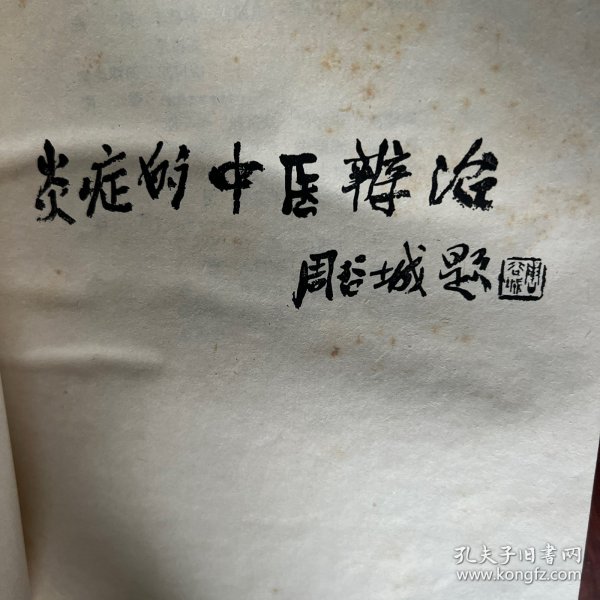 炎症的中医辨治
周谷城题
周谷城
孔夫子旧书网
www.kongfz.com